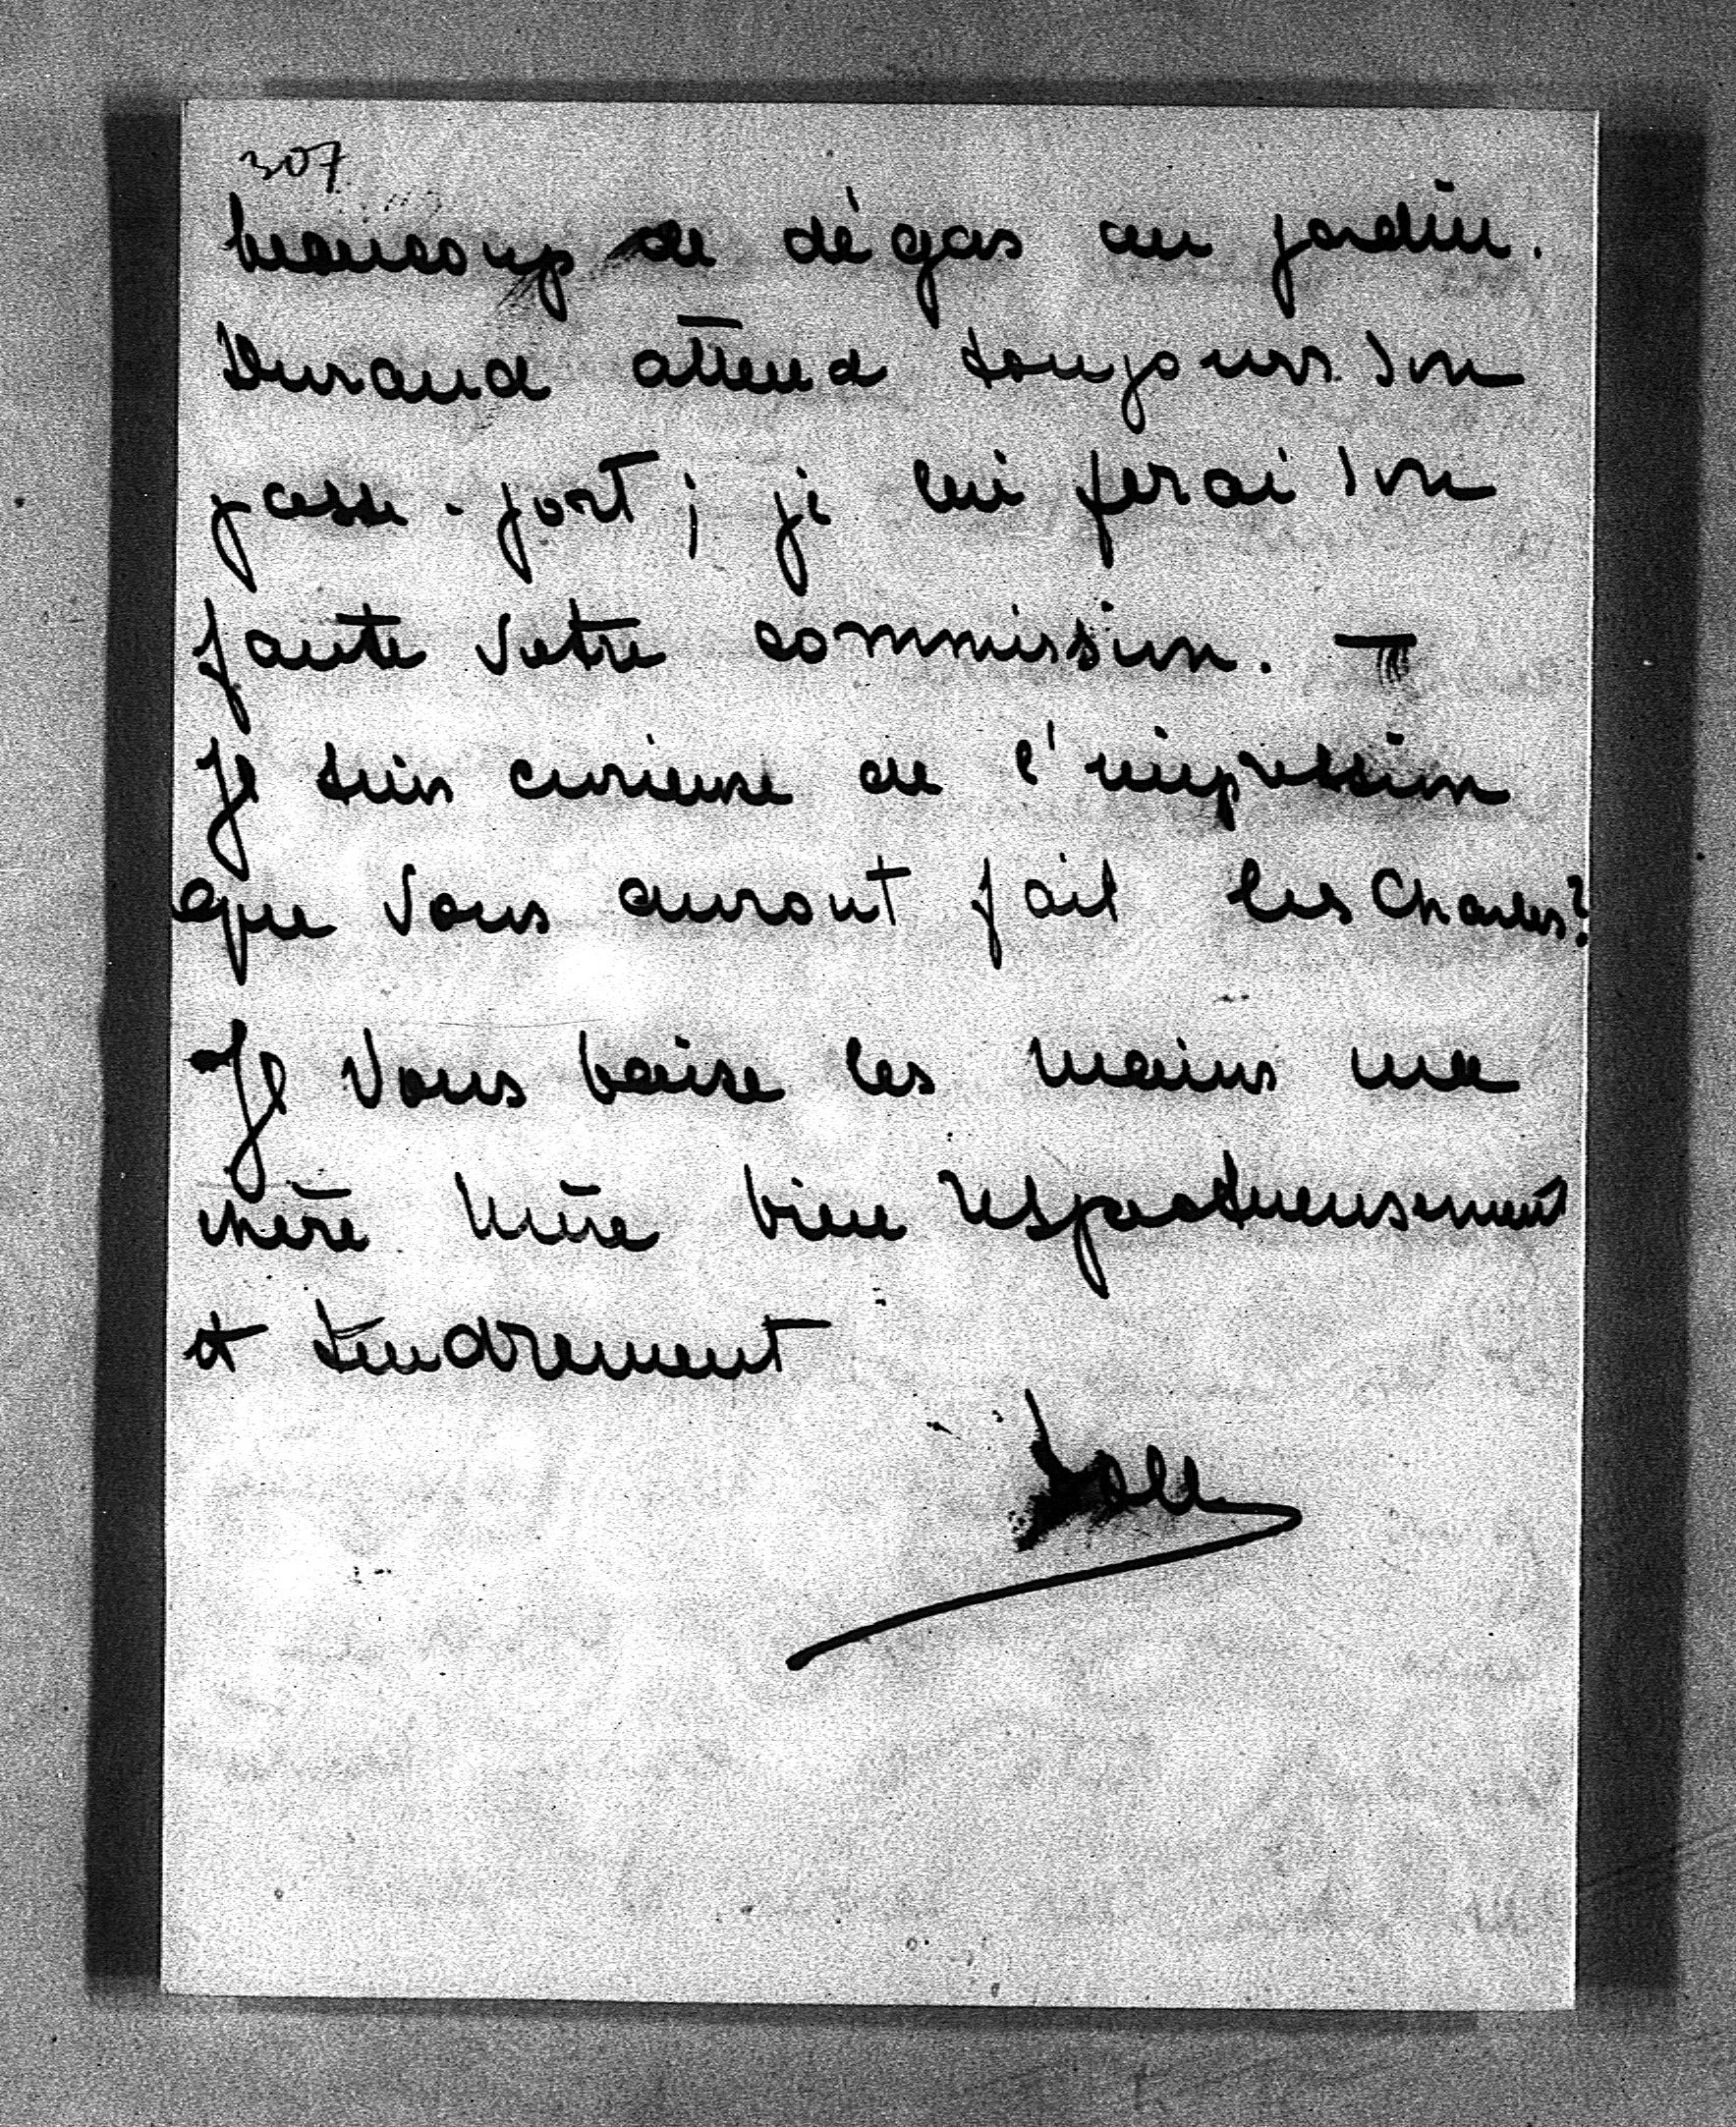 307
beaucoup de dégas au jardin.
Durand attend toujours son
passe-port ; je lui ferai son
faute votre commission. —
Je suis curieuse de l'impression
que vous auront fait les Charles?
Je vous baise les mains ma
chère Mère bien respectueusement
et tendrement